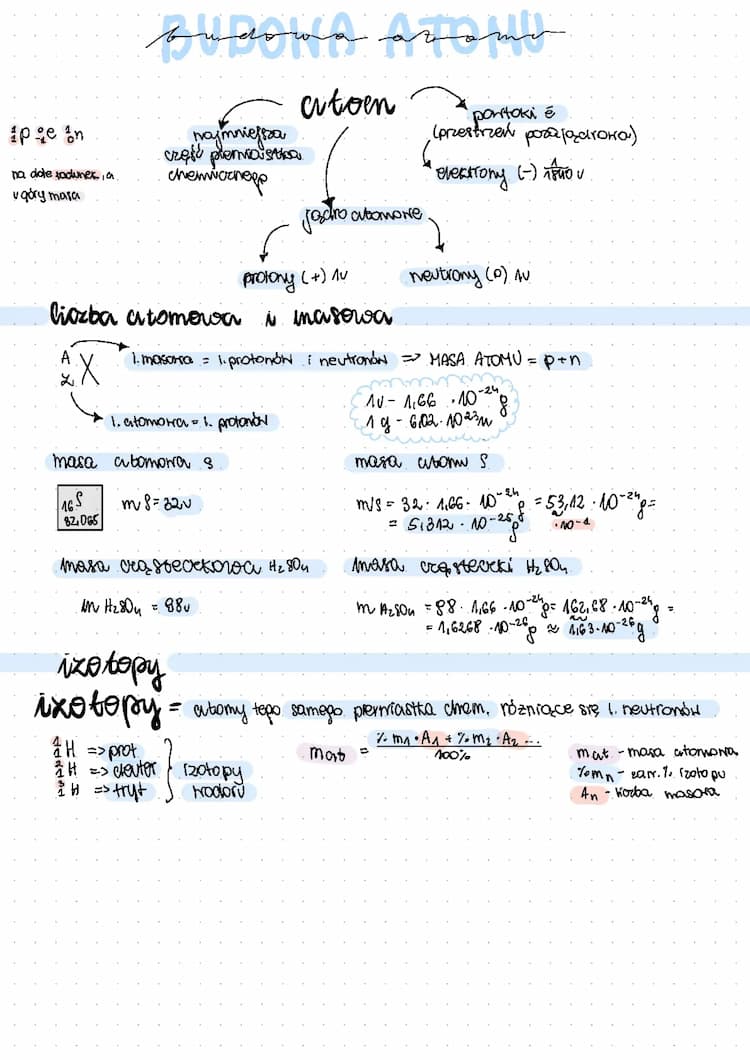 BUDOWA ATOMU
budowa atomu
atom
¹₁p ⁰₋₁e ¹₀n
na dole ładunek, a
u góry masa
najmniejsza
część pierwiastka
chemicznego
powłoki ē
(przestrzeń pozajądrowa)
elektrony (-) 1/1840 u
jądro atomowe
protony (+) 1u
neutrony (0) 1u
liczba atomowa i masowa
A
Z X
l. masowa = l. protonów i neutronów => MASA ATOMU = p+n
l. atomowa = l. protonów
1u - 1,66 · 10⁻²⁴ g
1 g - 6,02 · 10²³ u
masa atomowa S
masa atomu S
₁₆S
32,065
m S = 32u
m S = 32 · 1,66 · 10⁻²⁴ g = 53,12 · 10⁻²⁴ g =
= 5,312 · 10⁻²⁵ g
·10⁻¹
masa cząsteczkowa H₂SO₄
masa cząsteczki H₂SO₄
m H₂SO₄ = 98u
m H₂SO₄ = 98 · 1,66 · 10⁻²⁴ g = 162,68 · 10⁻²⁴ g =
= 1,6268 · 10⁻²⁶ g ≈ 1,63 · 10⁻²⁶ g
izotopy
izotopy = atomy tego samego pierwiastka chem. różniące się l. neutronów
¹₁H => prot
²₁H => deuter
³₁H => tryt
izotopy
wodoru
mat = %m₁ · A₁ + %m₂ · A₂ ...
100%
mat - masa atomowa
%mn - zaw. % izotopu
An - liczba masowa